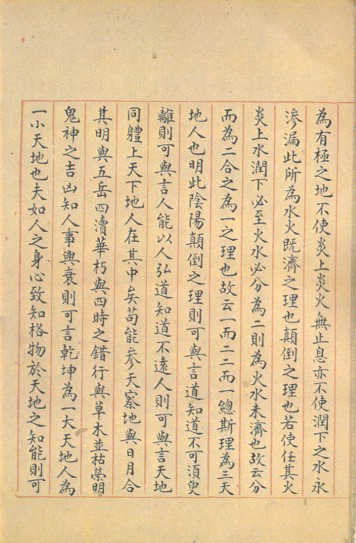 為有極之地不使炎上炎火無止息亦不使潤下之水永
滲漏此所為水火既濟之理也顛倒之理也若使任其火
炎上水潤下必至火水必分為二則為火水未濟也故云分
而為二合之為一之理也故云一而二二而一總斯理為三天
地人也明此陰陽顛倒之理則可與言道知道不可須臾
離則可與言人能以人弘道知道不遠人則可與言天地
同體上天下地人在其中矣苟能參天察地與日月合
其明與五岳四瀆華朽與四時之錯行與草木並枯榮明
鬼神之吉凶知人事興衰則可言乾坤為一大天地人為
一小天地也夫如人之身心致知格物於天地之知能則可